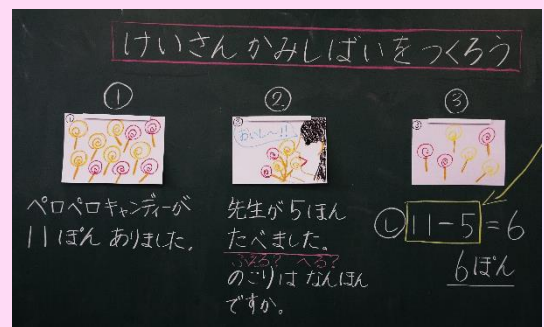 けいさんかみしばいをつくろう
①
ペロペロキャンディーが
11ぽん ありました。
②
おいし〜!!
先生が5ほん
たべました。
ふえる? へる?
のこりは なんぼん
ですか。
③
し 11-5=6
6ぽん